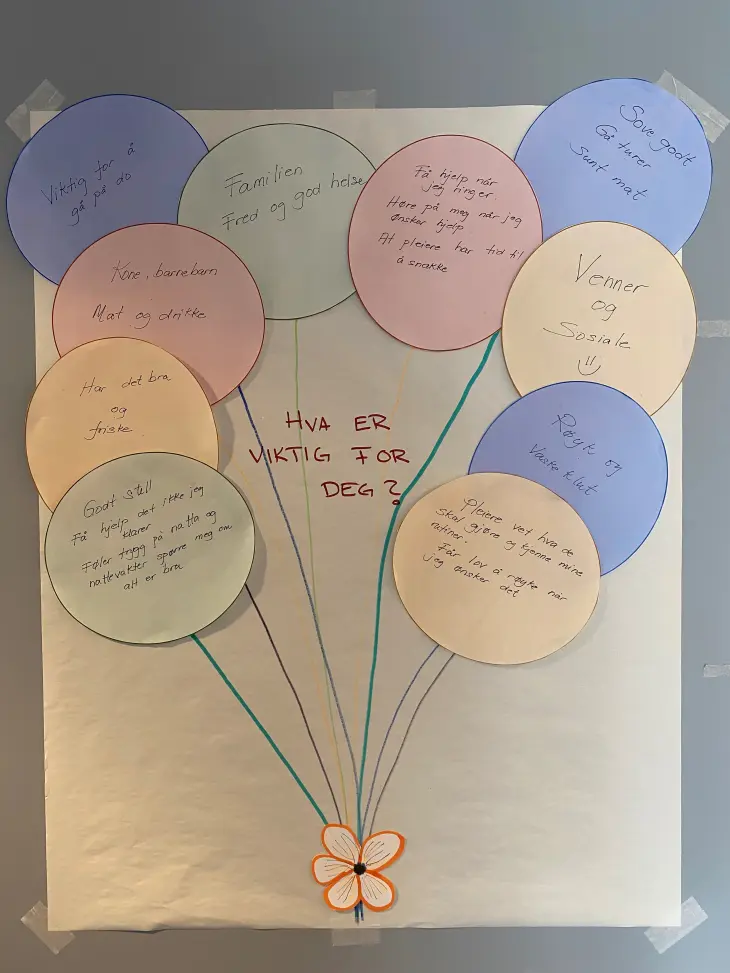 Viktig for å
gå på do
Familien
Fred og god helse
Få hjelp når
jeg ringer.
Høre på meg når jeg
ønsker hjelp
At pleiere har tid til
å snakke
Sove godt
Gå turer
Sunt mat
Kone, barnebarn
Mat og drikke
Venner
og
Sosiale
Har det bra
og
friske.
HVA ER
VIKTIG FOR
DEG?
Røyk og
Vaskeklut
Godt stell
Få hjelp det ikke jeg
klarer
Føler trygg på natta og
nattevakter spørre meg om
alt er bra
Pleiere vet hva de
skal gjøre og kjenne mine
rutiner.
Får lov å røyke når
jeg ønsker det